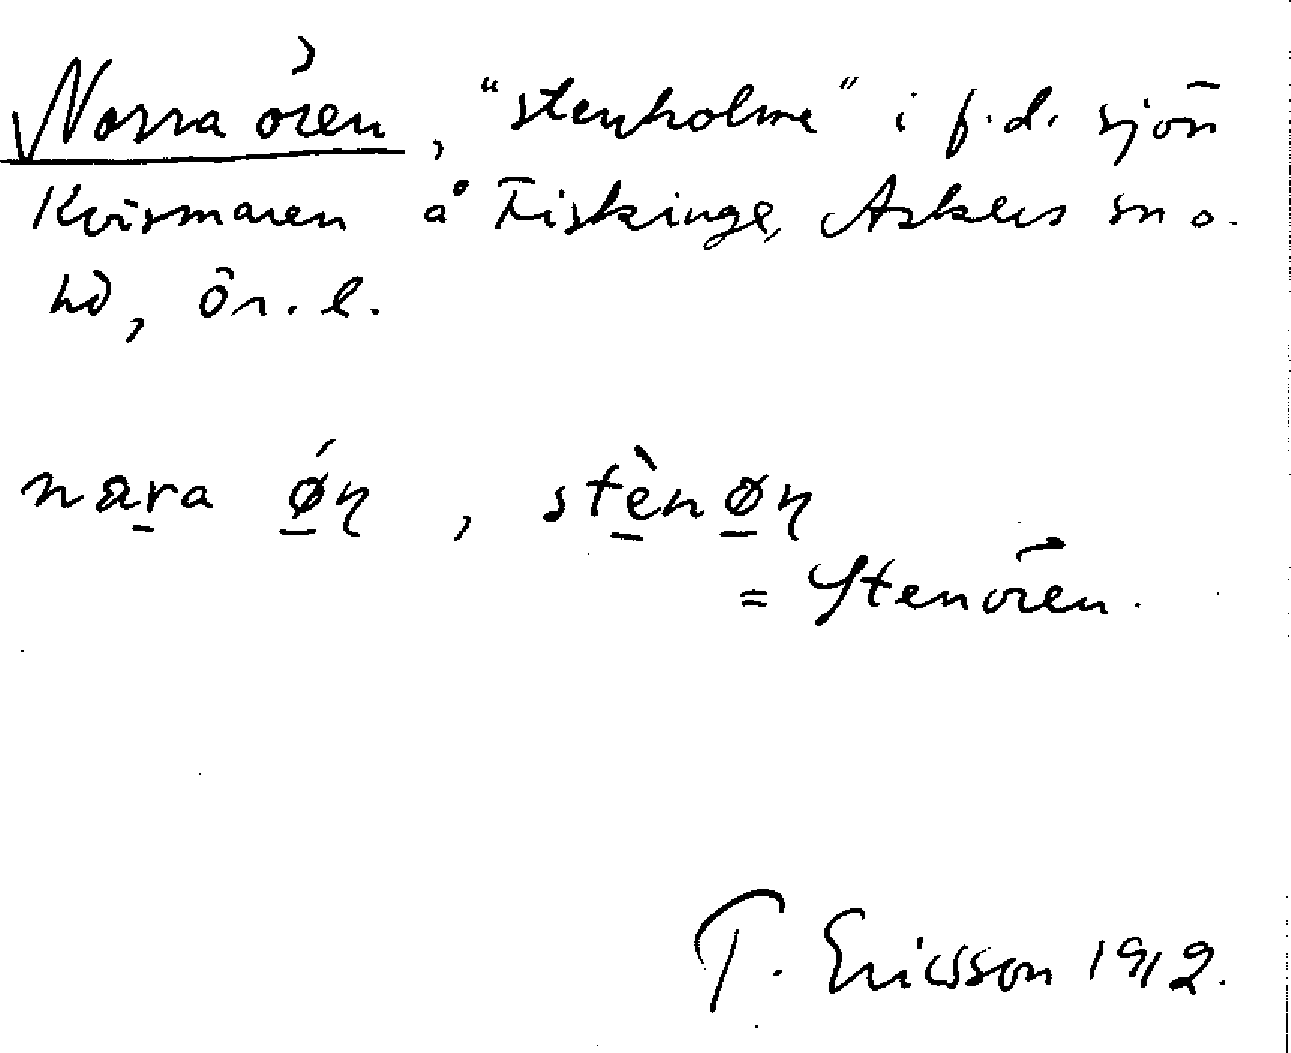 Norra ören, "stenholme" i f.d. sjön
Kvismaren å Fiskinge, Askers sn o.
hd, Ör. l.
nar̲a ǿ̲η, stè̲nø̲η
= Stenören.
T. Ericsson 1912.